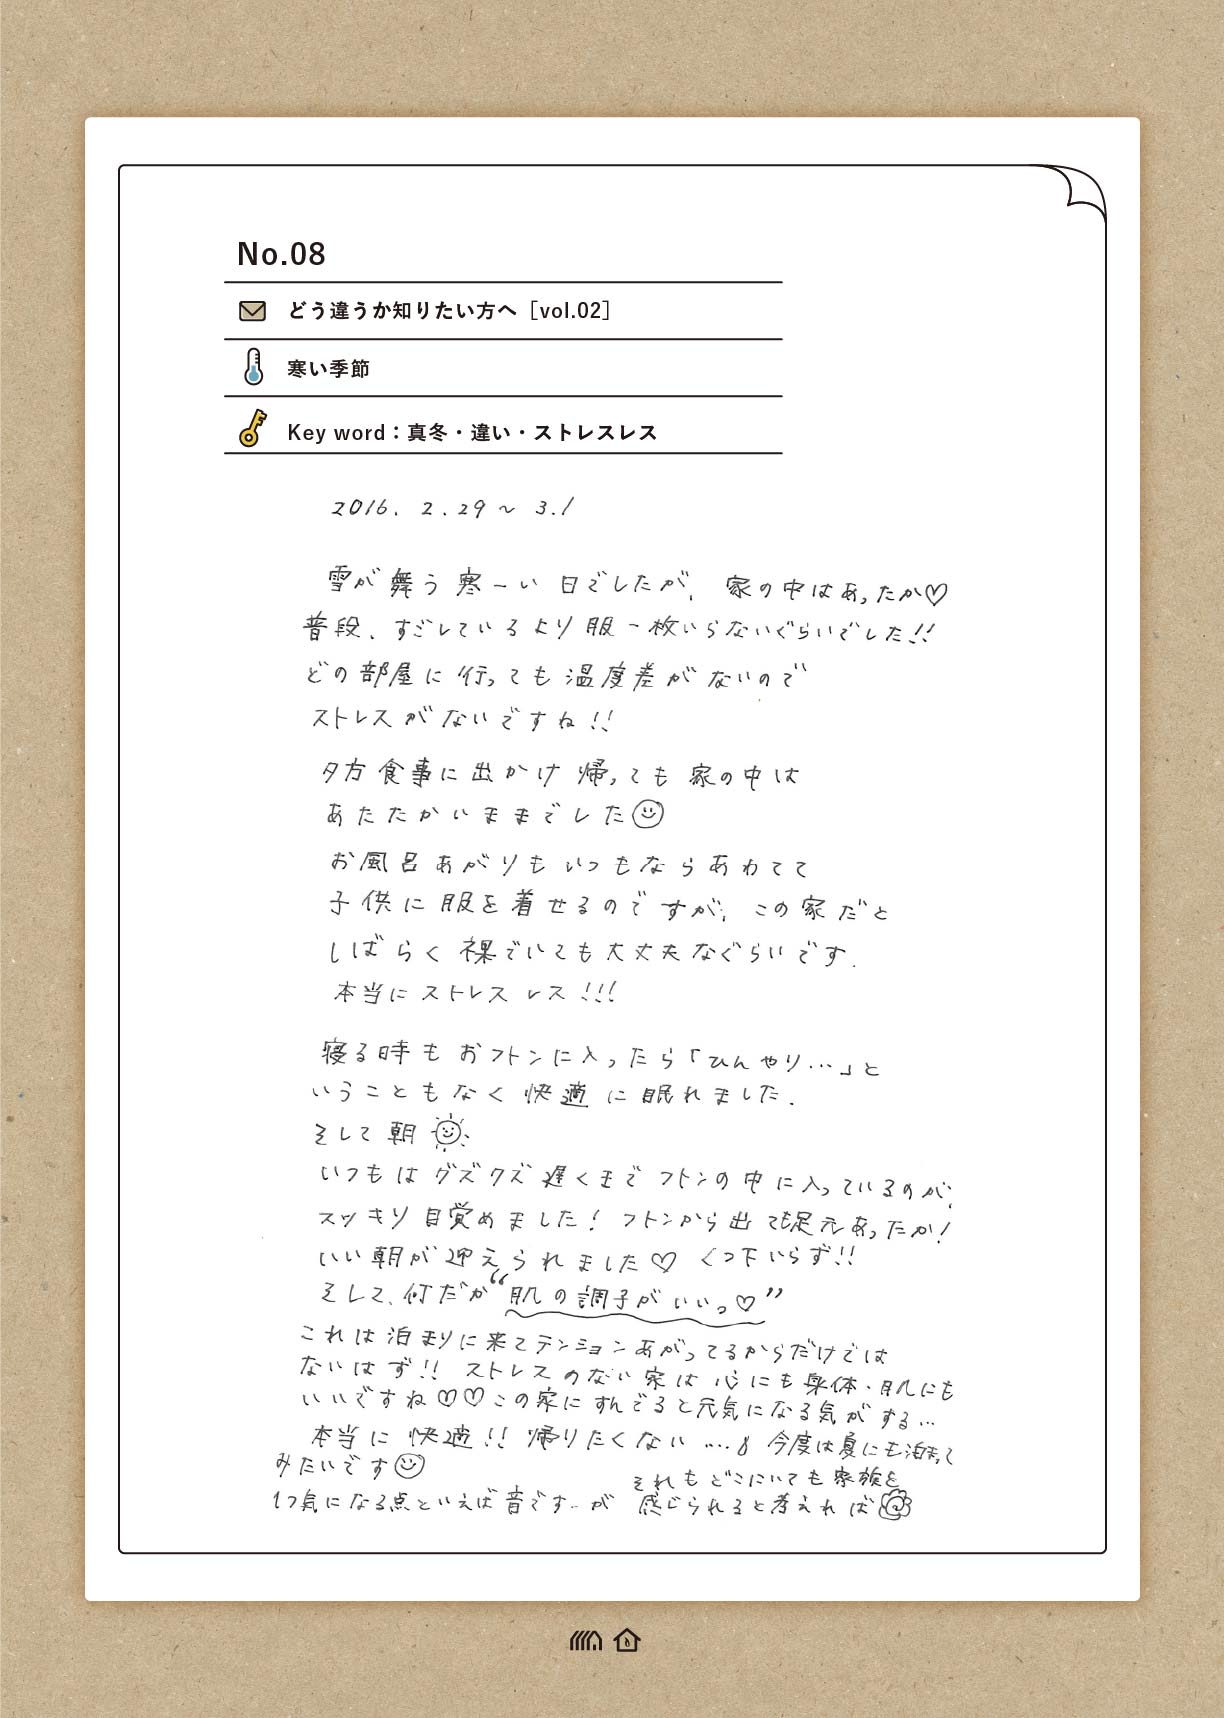 No.08
どう違うか知りたい方へ［vol.02］
寒い季節
Key word：真冬・違い・ストレスレス
2016. 2.29～3.1
雪が舞う寒ーい日でしたが、家の中はあったか♡
普段、すごしているより服一枚いらないぐらいでした!!
どの部屋に行っても温度差がないので
ストレスがないですね!!
夕方食事に出かけ帰っても家の中は
あたたかいままでした
お風呂あがりもいつもならあわてて
子供に服を着せるのですが、この家だと
しばらく裸でいても大丈夫なぐらいです.
本当にストレスレス!!!
寝る時もおフトンに入ったら「ひんやり…」と
いうこともなく快適に眠れました.
そして朝
いつもはグズグズ遅くまでフトンの中に入っているのが、
スッキリ目覚めました! フトンから出ても足元あったか!
いい朝が迎えられました♡ くつ下いらず!!
そして、何だか“肌の調子がいいっ♡”
これは泊まりに来てテンションあがってるからだけでは
ないはず!! ストレスのない家は心にも身体・肌にも
いいですね♡♡この家にすんでると元気になる気がする…
本当に快適!! 帰りたくない…。今度は夏にも泊まって
みたいです
1つ気になる点といえば音です…が それもどこにいても家族を
感じられると考えれば